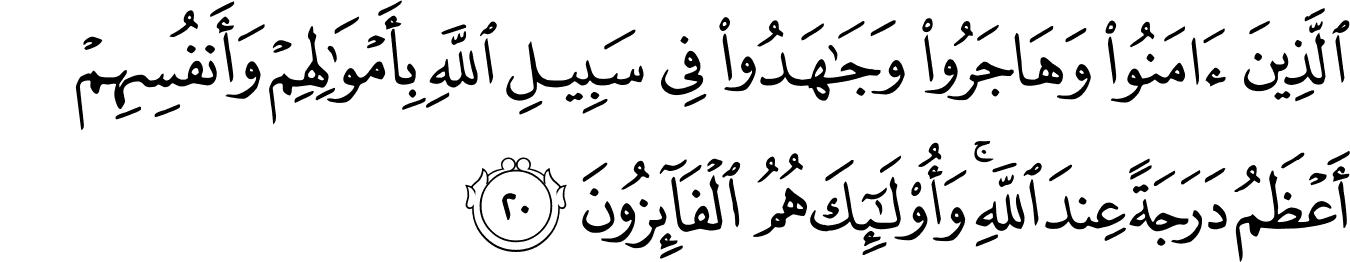 ٱلَّذِينَ ءَامَنُوا۟ وَهَاجَرُوا۟ وَجَـٰهَدُوا۟ فِى سَبِيلِ ٱللَّهِ بِأَمْوَٰلِهِمْ وَأَنفُسِهِمْ
أَعْظَمُ دَرَجَةً عِندَ ٱللَّهِ ۚ وَأُو۟لَـٰٓئِكَ هُمُ ٱلْفَآئِزُونَ ٢٠